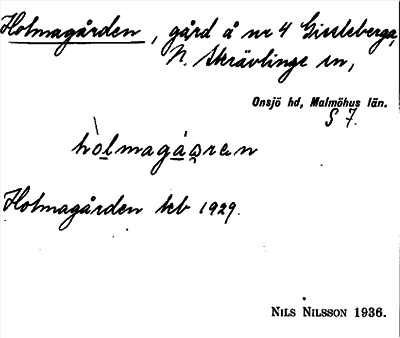 Holmagården, gård å nr 4 Gissleberga,
N. Skrävlinge sn,
Onsjö hd, Malmöhus län.
S 7.
hòlmagåɑ̯ren
Holmagården kb 1929.
NILS NILSSON 1936.